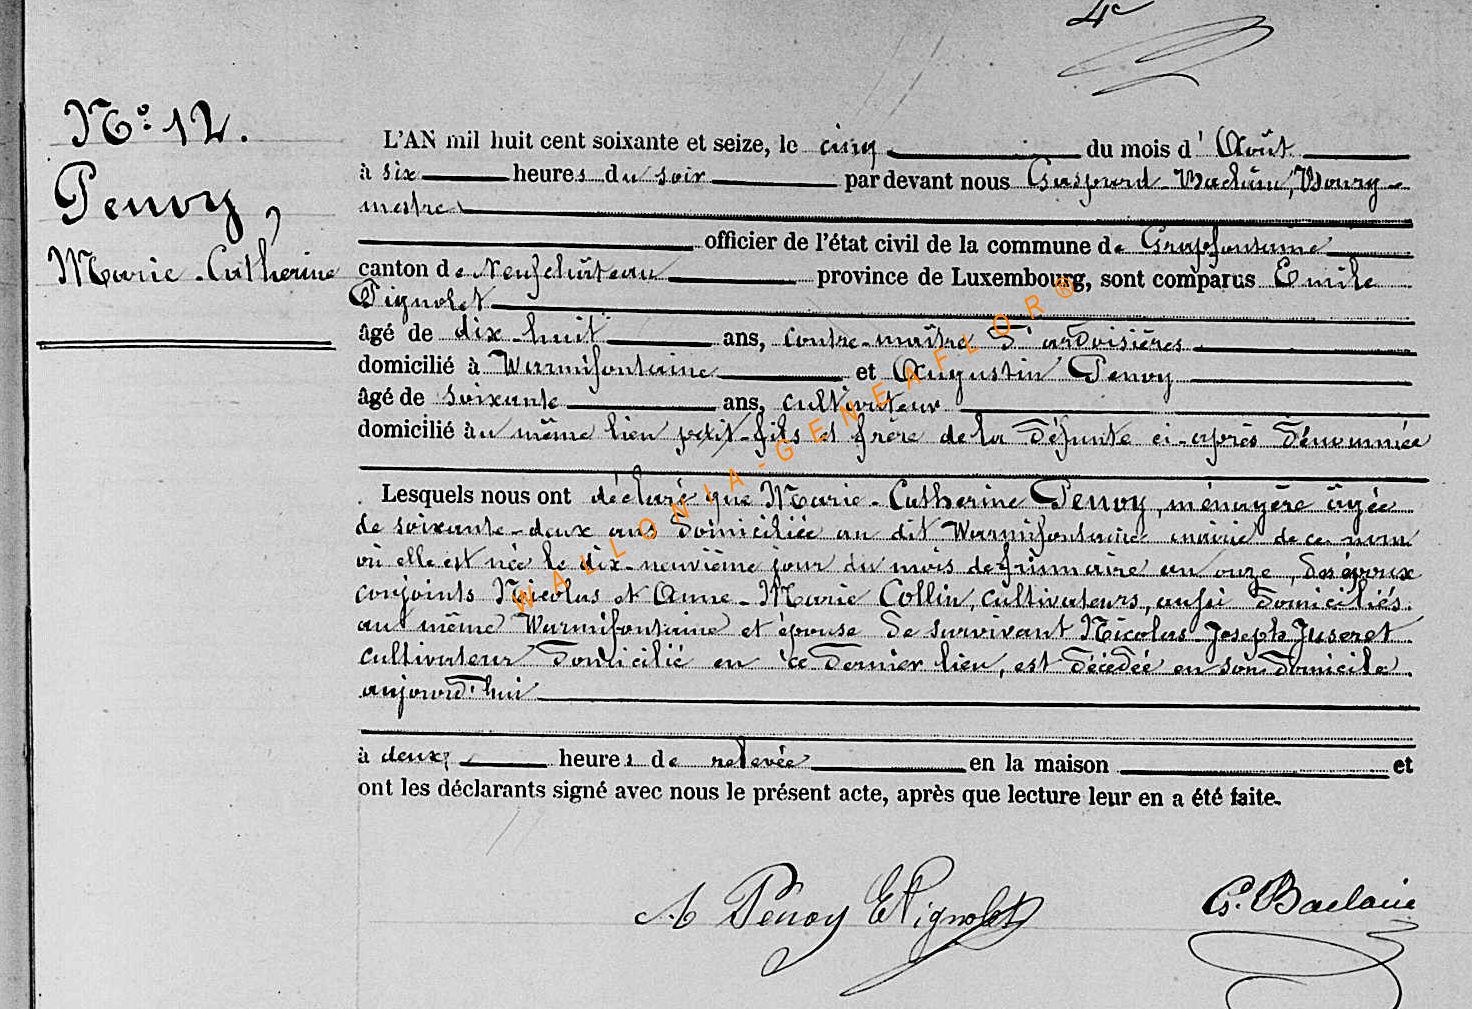 4e
No. 12.
Penoy,
Marie-Catherine
L'AN mil huit cent soixante et seize, le cinq du mois d'Août
à six heures du soir par devant nous Gaspard Baclain, Bourg-
mestre
officier de l'état civil de la commune de Grapfontaine
canton de Neufchâteau province de Luxembourg, sont comparus Emile
Pignolet
âgé de dix-huit ans, contre-maître d'ardoisières
domicilié à Warmifontaine et Augustin Penoy
âgé de soixante ans, cultivateur
domicilié au même lieu petit-fils et frère de la défunte ci-après dénommée
Lesquels nous ont déclaré que Marie-Catherine Penoy, ménagère âgée
de soixante-deux ans domiciliée au dit Warmifontaine mairie de ce nom
où elle est née le dix-neuvième jour du mois de frimaire an onze, des époux
conjoints Nicolas et Anne-Marie Collin, cultivateurs, aussi domiciliés
au même Warmifontaine et épouse de survivant Nicolas Joseph Juseret
cultivateur domicilié en ce dernier lieu, est décédée en son domicile
aujourd'hui
à deux heures de relevée en la maison et
ont les déclarants signé avec nous le présent acte, après que lecture leur en a été faite.
A Penoy E Pignolet G. Baclain
WALLONIA-GENEAFLOR®